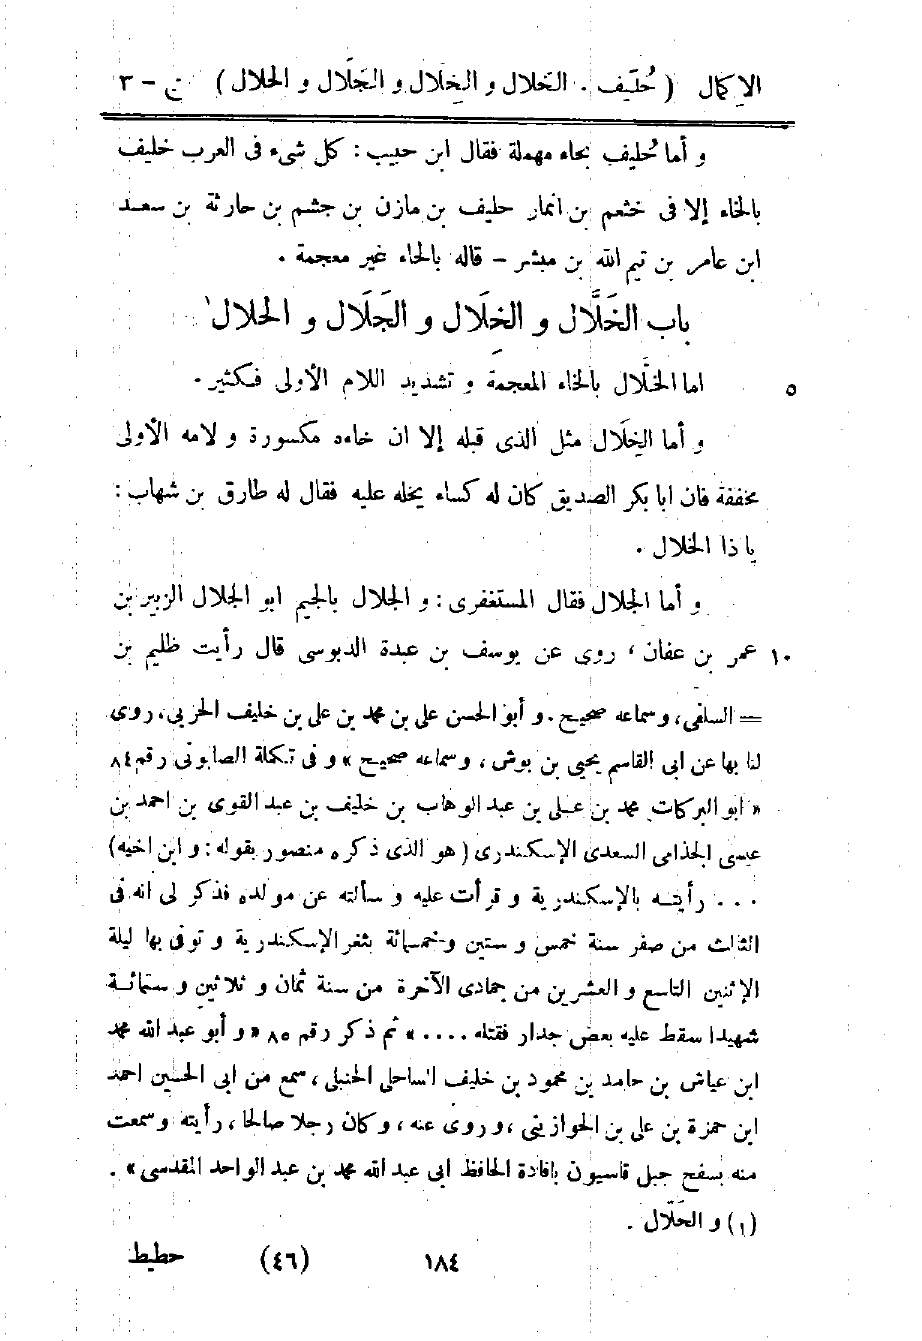 الإكمال ( حُلَيف . الخلال و الخِلال و الجَلَال و الحلال ) ج – ٣
و أما حُليف بحاء مهملة فقال ابن حبيب : كل شىء فى العرب خليف
بالخاء إلا فى خثعم بن انمار حليف بن مازن بن جشم بن حارثة بن سعد
ابن عامر بن تيم الله بن مبشر – قاله بالحاء غير معجمة .
باب الخَلَّال و الخِلَال و الجَلَال و الحلال١
اما الخلَّال بالخاء المعجمة و تشديد اللام الأولى فكثير . ٥
و أما الخِلَال مثل الذى قبله إلا ان خاءه مكسورة و لامه الأولى
مخففة فان ابا بكر الصديق كان له كساء يخله عليه فقال له طارق بن شهاب :
يا ذا الخلال .
و أما الجلال فقال المستغفرى : و الجلال بالجيم ابو الجلال الزبير بن
عمر بن عفان ، روى عن يوسف بن عبدة الدبوسى قال رأيت ظليم بن ١٠
= السلفى، وسماعه صحيح . و أبو الحسن على بن محمد بن على بن خليف الحربى، روى
لنا بها عن ابى القاسم يحيى بن بوش ، وسماعه صحيح » و فى تكملة الصابونى رقم ٨٤
« ابو البركات محمد بن على بن عبد الوهاب بن خليف بن عبد القوى بن احمد بن
عيسى الجذامى السعدى الإسكندرى ( هو الذى ذكره منصور بقوله : و ابن اخيه )
. . . رأيته بالإسكندرية و قرأت عليه و سألته عن مولده فذكر لى انه فى
الثالث من صفر سنة خمس و ستين و خمسمائة بثغر الإسكندرية و توفى بها ليلة
الإثنين التاسع و العشرين من جمادى الآخرة من سنة ثمان و ثلاثين و ستمائة
شهيدا سقط عليه بعض جدار فقتله . . . . » ثم ذكر رقم ٨٥ « و أبو عبد الله محمد
ابن عياش بن حامد بن محمود بن خليف الساحلى الحنبلى ، سمع من ابى الحسين احمد
ابن حمزة بن على بن الموازينى ، و روى عنه ، و كان رجلا صالحا ، رأيته و سمعت
منه بسفح جبل قاسيون بافادة الحافظ ابى عبد الله محمد بن عبد الواحد المقدسى » .
(١) و الحَلَّال .
١٨٤ (٤٦) حطيط